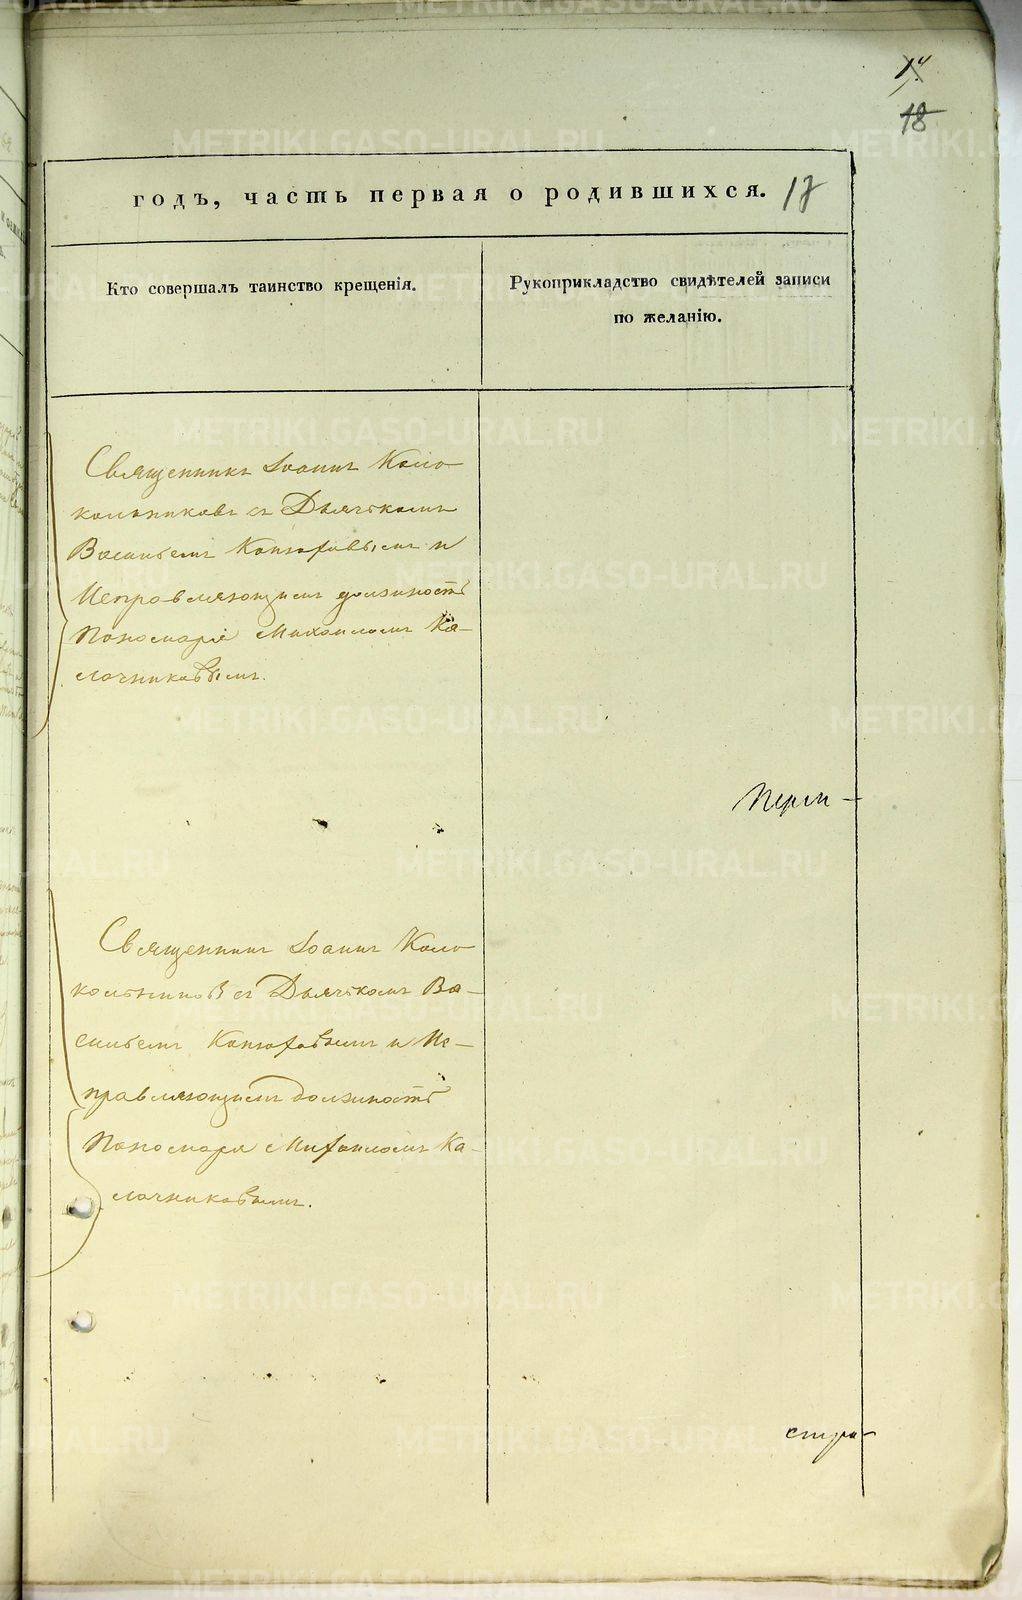 18
годъ, часть первая о родившихся. 17
Кто совершалъ таинство крещенія.
Рукоприкладство свидѣтелей записи
по желанію.
Священникъ Іоаннъ Коло-
кольниковъ съ Дьячькомъ
Васильемъ Капхаровымъ и
Исправляющимъ должность
Пономаря Михаиломъ Ка-
лачниковымъ.
Перм-
Священник Іоаннъ Коло-
кольников съ Дьячькомъ Ва-
сильемъ и Ис-
правляющимъ должность
Пономаря Михаиломъ Ка-
лачниковымъ.
METRIKI.GASO-URAL.RU